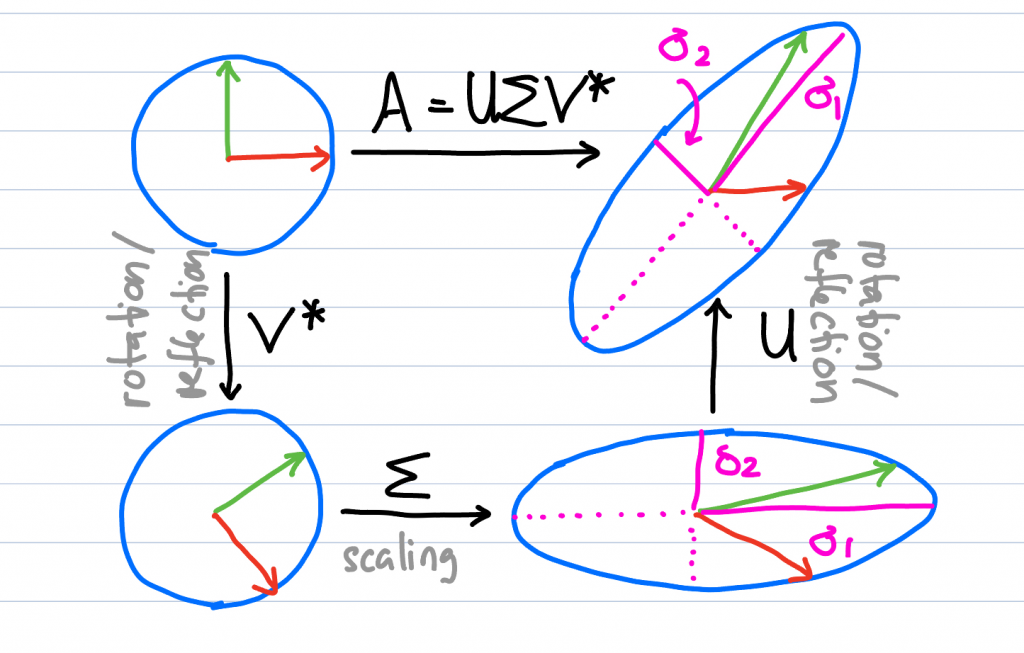 σ₂
A = UΣV*
σ₁
rotation/
reflection
V*
U
rotation/
reflection
Σ
scaling
σ₂
σ₁